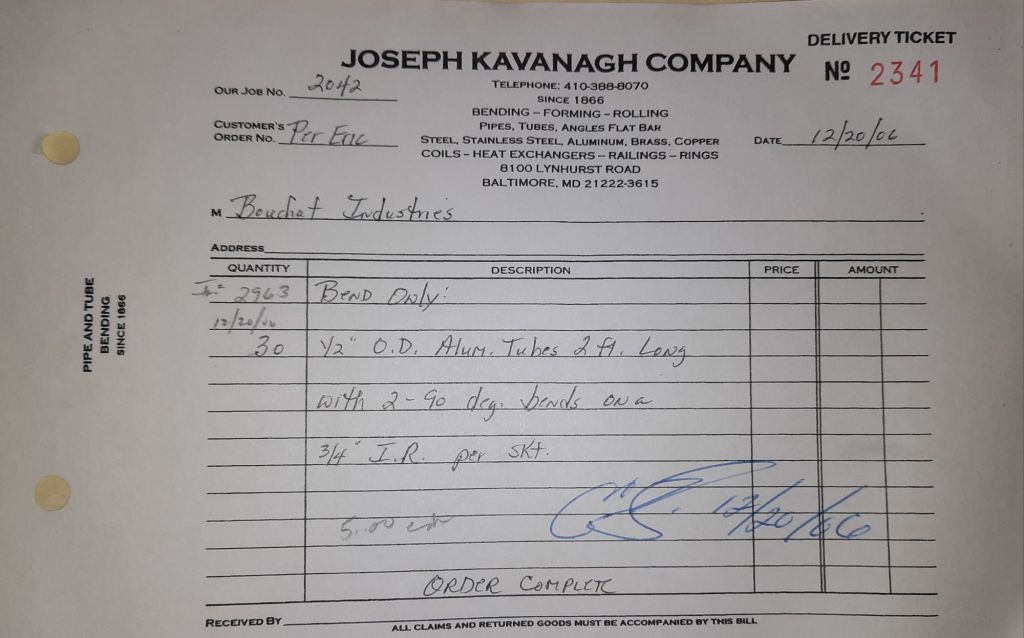 DELIVERY TICKET
JOSEPH KAVANAGH COMPANY
Nº 2341
OUR JOB NO. 2042
TELEPHONE: 410-388-8070
SINCE 1866
BENDING – FORMING – ROLLING
CUSTOMER'S ORDER NO. Per Eric
PIPES, TUBES, ANGLES FLAT BAR
STEEL, STAINLESS STEEL, ALUMINUM, BRASS, COPPER
DATE 12/20/06
COILS – HEAT EXCHANGERS – RAILINGS – RINGS
8100 LYNHURST ROAD
BALTIMORE, MD 21222-3615
M Bouchat Industries
ADDRESS
QUANTITY DESCRIPTION PRICE AMOUNT
2963 Bend Only:
12/20/06
30 1/2" O.D. Alum. Tubes 2 ft. Long
with 2-90 deg. bends on a
3/4" I.R. per skt.
12/20/06
5.00
ORDER COMPLETE
RECEIVED BY
ALL CLAIMS AND RETURNED GOODS MUST BE ACCOMPANIED BY THIS BILL
PIPE AND TUBE
BENDING
SINCE 1866